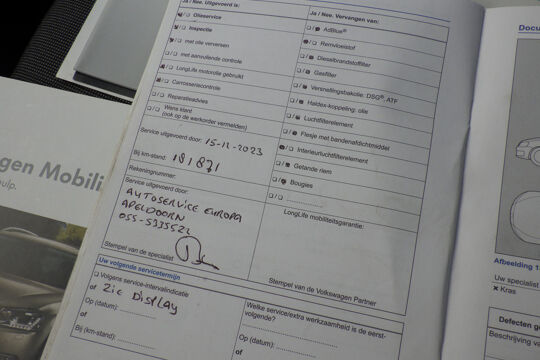 Ja / Nee. Uitgevoerd is:
Olieservice
Inspectie
met olie verversen
met aanvullende controle
LongLife motorolie gebruikt
Carrosseriecontrole
Reparatieadvies
Wens klant
(ook op de werkorder vermelden)
Service uitgevoerd door: 15-12-2023
Bij km-stand: 181871
Rekeningnummer:
Service uitgevoerd door:
AUTOSERVICE EUROPA
APELDOORN
Stempel van de specialist
Ja / Nee. Vervangen van:
AdBlue®
Remvloeistof
Dieselbrandstoffilter
Gasfilter
Versnellingsbakolie: DSG®, ATF
Haldex-koppeling: olie
Luchtfilterelement
Flesje met bandenafdichtmiddel
Interieurluchtfilterelement
Getande riem
Bougies
LongLife mobiliteitsgarantie:
Stempel van de Volkswagen Partner
Uw volgende servicetermijn
Volgens service-intervalindicatie
of Zie Display
Op (datum):
of
Bij (km-stand):
Welke service/extra werkzaamheid is de eerst-
volgende?
Op (datum):
of
gen Mobili
ulp.
Docu
Afbeelding 1
Uw specialist
× Kras
Defecten g
Beschrijving v